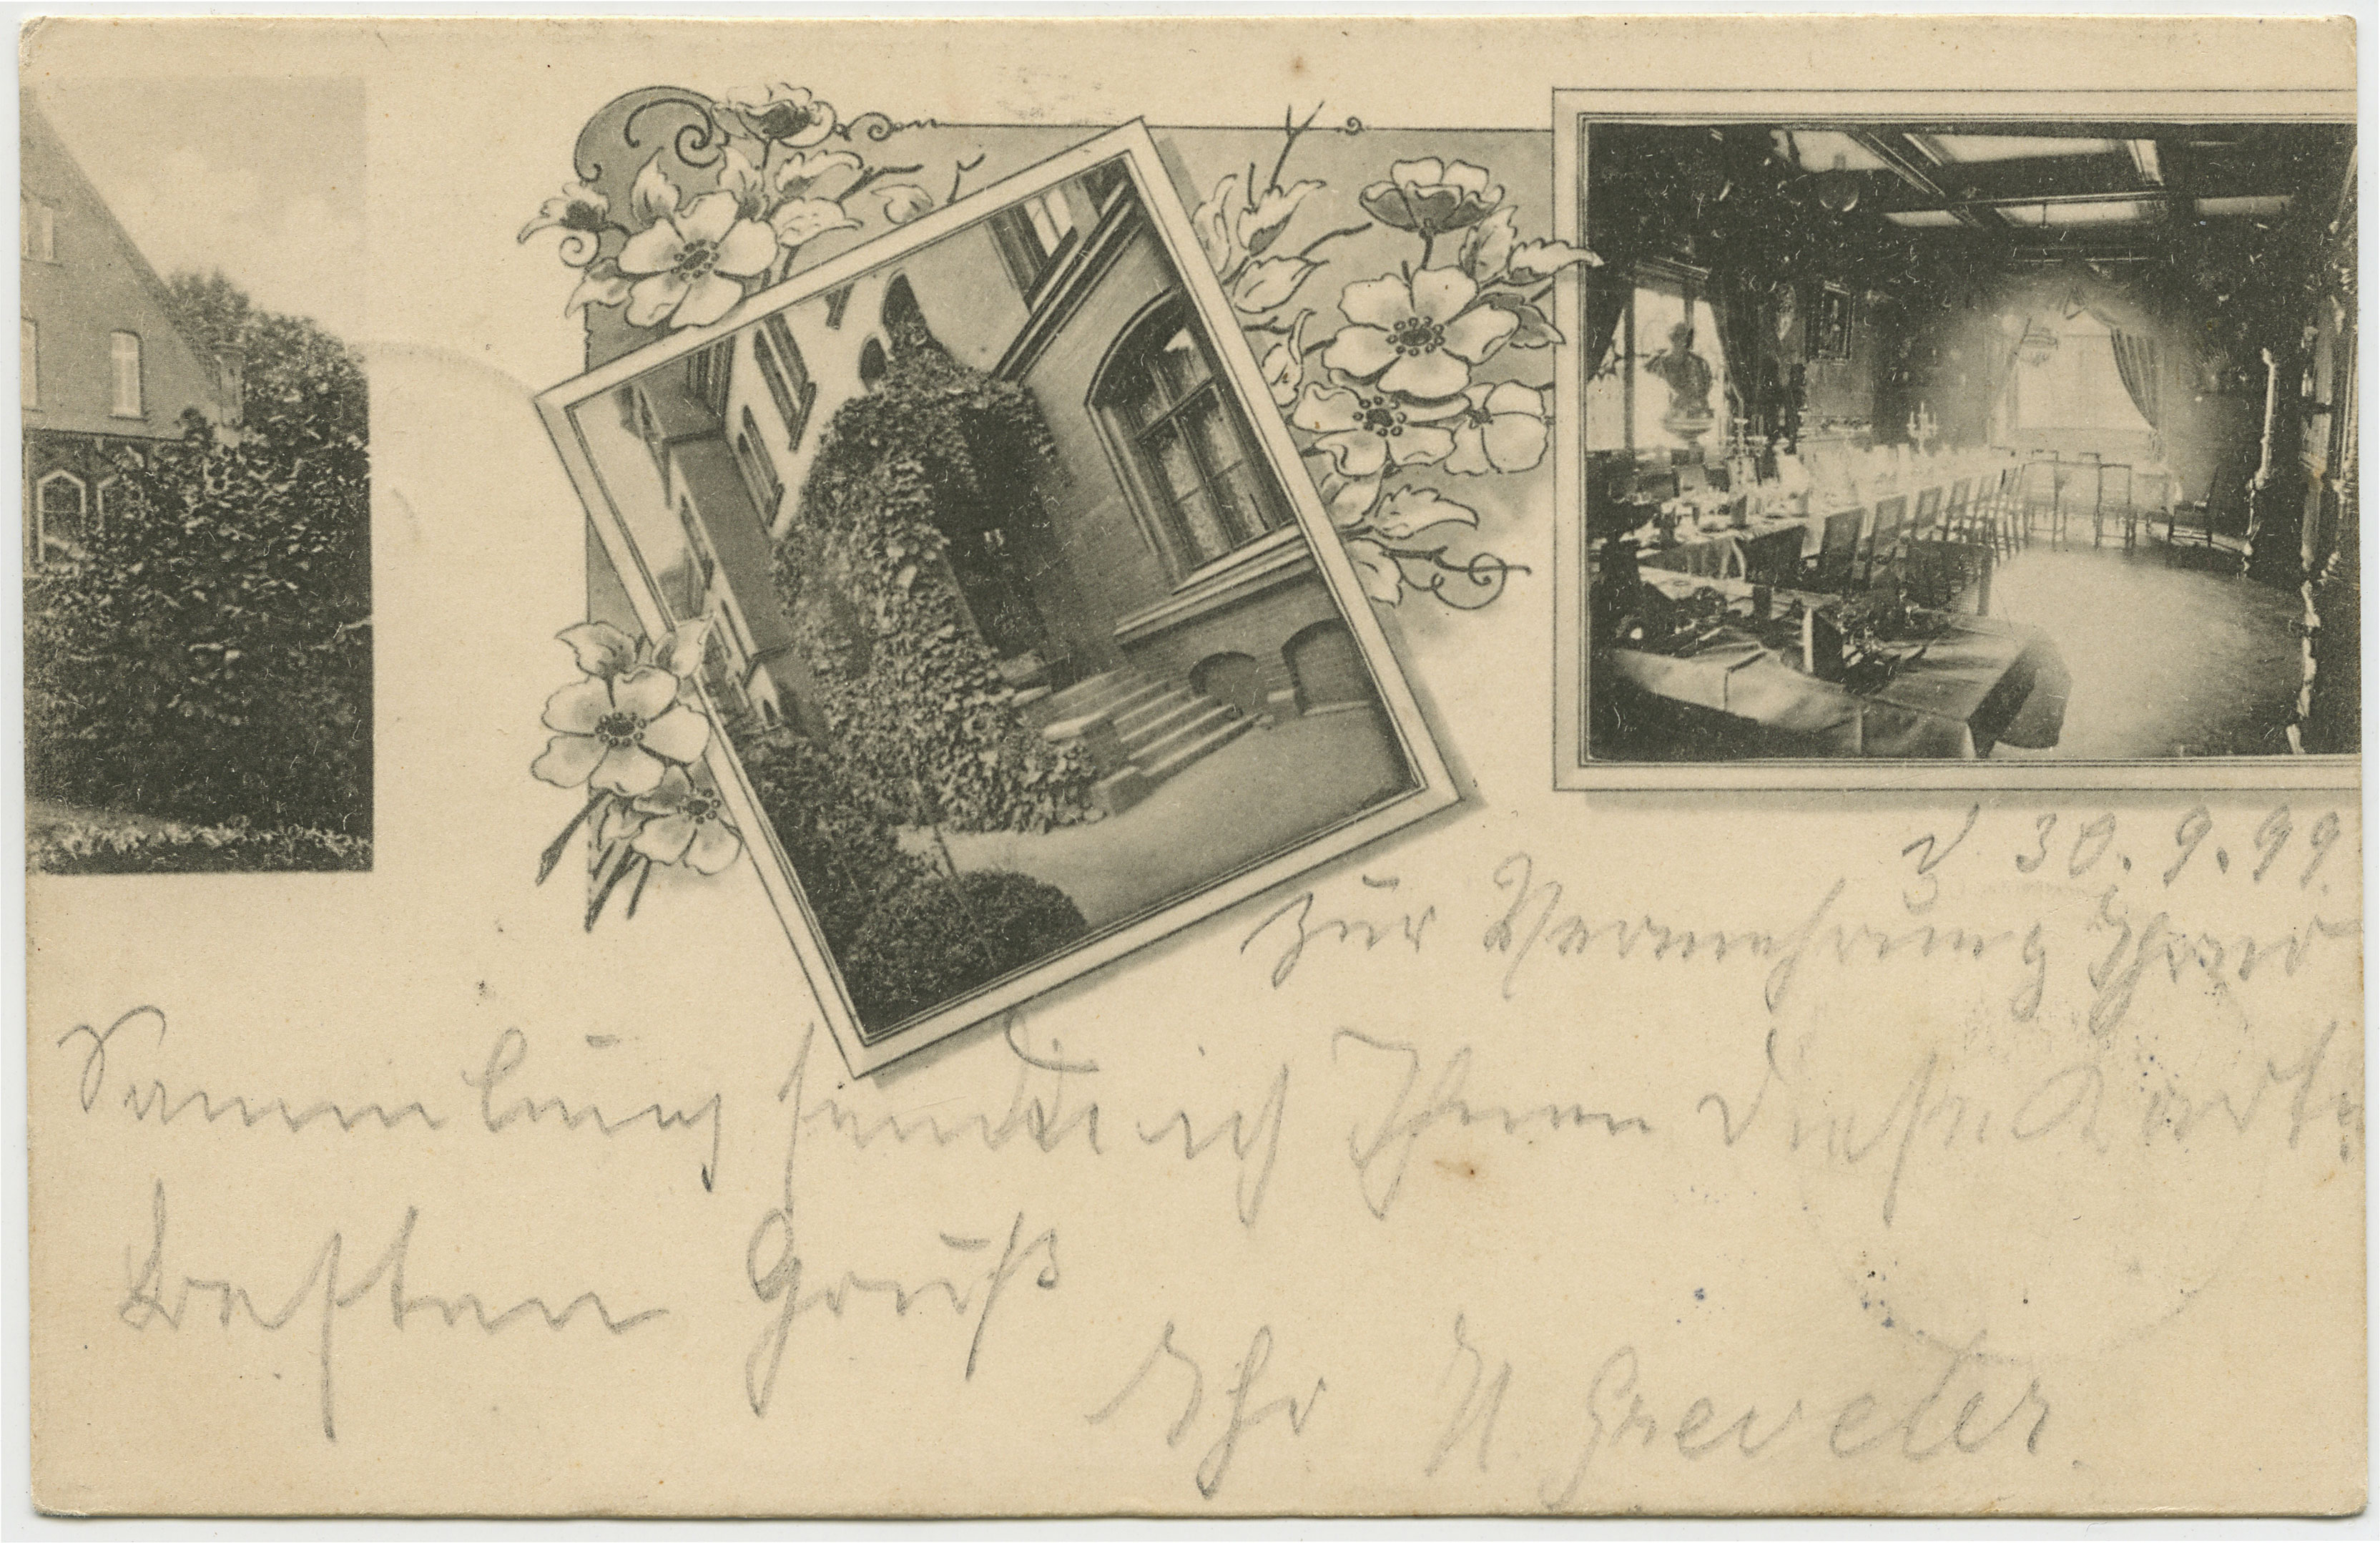 d 30.9.99.
Zur Vermehrung Ihrer
Sammlung sende ich Ihnen diese Karte
Besten Gruß
Ihr H. Greveler.